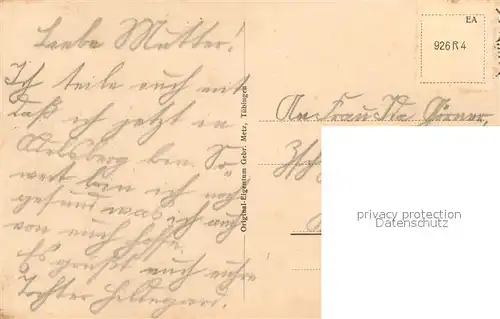 Liebe Mutter!
Ich teile euch mit
daß ich jetzt in
Adelsberg bin. So
weit bin ich noch
gesund was ich auch
von euch hoffe.
Es grüßt euch eure
Tochter Hildegard.
Original-Eigentum Gebr. Metz, Tübingen
EA
926 R 4
An Frau
privacy protection
Datenschutz